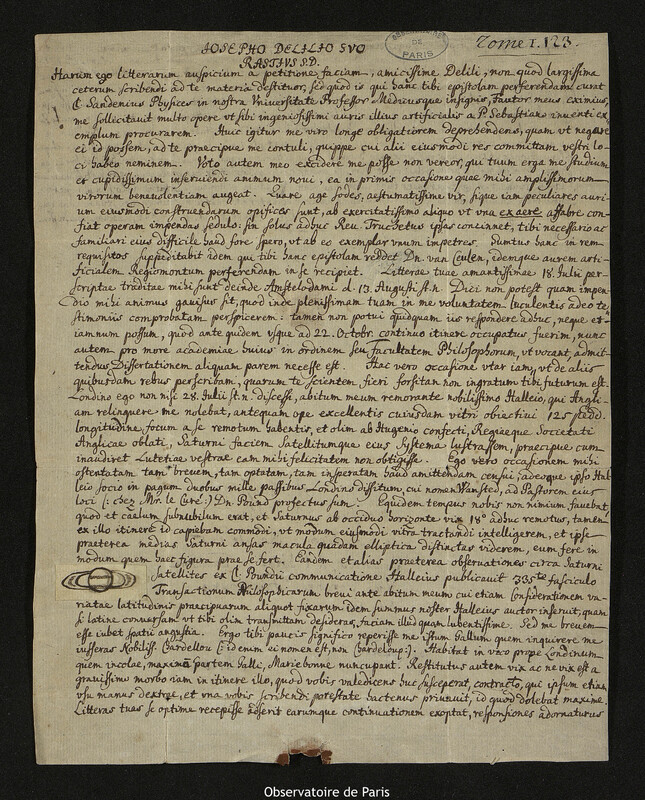 OBSERVATOIRE DE PARIS
Tome I. 123.
IOSEPHO DELILIO SVO
RASTIVS S.D.
Harum ego litterarum auspicium a petitione faciam, amicissime Delili, non quod largissima
ceterum scribendi ad te materia destituor, sed quod is qui hanc tibi epistolam perferendam curat
Cl. Sandenius Physices in nostra Vniuersitate Professor Medicusque insignis, Fautor meus eximius,
me sollicitauit multo opere vt sibi ingeniosissimi auris illius artificialis a P. Sebastiano inuenti ex-
emplum procurarem. Huic igitur me viro longe obligatiorem deprehendens, quam vt negare
ei id possem, ad te praecipue me contuli, quippe cui alii eiusmodi res committam vestri lo-
ci habeo neminem. Voto autem meo excidere me posse non vereor, qui tuum erga me studium
et cupidissimum inseruiendi animum noui, ea in primis occasione quae mihi amplissimorum
virorum beneuolentiam augeat. Quare age sodes, aestumatissime vir, sique iam peculiares auri-
um eiusmodi construendarum opifices sunt, ab exercitatissimo aliquo vt vna ex aere affabre con-
fiat operam impendas sedulo: sin solus adhuc Reu. Truchetus ipsas concinnet, tibi necessario ac
familiari eius difficile haud fore spero, vt ab eo exemplar vnum impetres. Sumtus hanc in rem
requisitos suppeditabit idem qui tibi hanc epistolam reddet Dn. van Ceulen, idemque aurem arti-
ficialem Regiomontum perferendam in se recipiet. Litterae tuae amantissimae 18. Iulii per-
scriptae traditae mihi sunt deinde Amstelodami d. 13. Augusti st. n. Dici non potest quam impen-
dio mihi animus gauisus sit, quod inde plenissimam tuam in me voluntatem luculentis adeo te-
stimoniis comprobatam perspicerem: tamen non potui quidquam iis respondere adhuc, neque et-
iamnum possum, quod ante quidem vsque ad 22. Octobr. continuo itinere occupatus fuerim, nunc
autem pro more academiae huius in ordinem seu Facultatem Philosophorum, vt vocant, admit-
tendus Dissertationem aliquam parem necesse est. Hac vero occasione vtar iam, vt de aliis
quibusdam rebus perscribam, quarum te scientem fieri forsitan non ingratum tibi futurum est.
Londino ego non nisi 28. Iulii st. n. discessi, abitum meum remorante nobilissimo Halleio, qui Angli-
am relinquere me nolebat, antequam ope excellentis cuiusdam vitri obiectiui 125 pedd.
longitudine focum a se remotum habentis, et olim ab Hugenio confecti, Regiaeque Societati
Anglicae oblati, Saturni faciem Satellitumque eius systema lustrassem, praecipue cum
inaudiret Lutetiae vestrae eam mihi felicitatem non obtigisse. Ego vero occasionem mihi
ostentatam tam breuem, tam optatam, tam insperatam haud amittendam censui, adeoque ipso Hal-
leio socio in pagum duobus mille passibus Londino dissitum, cui nomen Wansted, ad Pastorem eius
loci (: chez Mor. le Curé:) Dn. Pound profectus sum. Equidem tempus nobis non nimium fauebat,
quod et caelum subnubilum erat, et Saturnus ab occiduo horizonte vix 14° adhuc remotus, tamen
ex illo itinere id capiebam commodi, vt modum eiusmodi vitra tractandi intelligerem, et ipse
praeterea medias Saturni ansas macula quadam elliptica distinctas viderem, eum fere in
modum quem haec figura prae se fert. Eandem et alias praeterea obseruationes circa Saturni
Satellites ex Cl. Poundii communicatione Halleius publicauit 335to fasciculo
Transactionum Philosophicarum breui ante abitum meum cui etiam considerationem va-
riatae latitudinis praecipuarum aliquot fixarum idem summus noster Halleius auctor inseruit, quam
si latine conuersam vt tibi olim transmittam desideras, faciam illud quam lubentissime. Sed me breuem
esse iubet spatii angustia. Ergo tibi paucis significo reperisse me istum Gallum quem inquirere me
iusseras Nobiliss. Cardellou (: idem ei nomen est, non Chardeloup:). Habitat in vico prope Londinum
quem incolae, maximam partem Galli, Mariebonne nuncupant. Restitutus autem vix ac ne vix est a
grauissimo morbo iam in itinere illo, quod vobis valedicens huc susceperat, contracto, qui ipsum etiam
vsu manus dextrae, et vna vobis scribendi potestate hactenus priuauit, id quod dolebat maxime.
Litteras tuas se optime recepisse asserit earumque continuationem exoptat, responsiones adornaturus
Observatoire de Paris